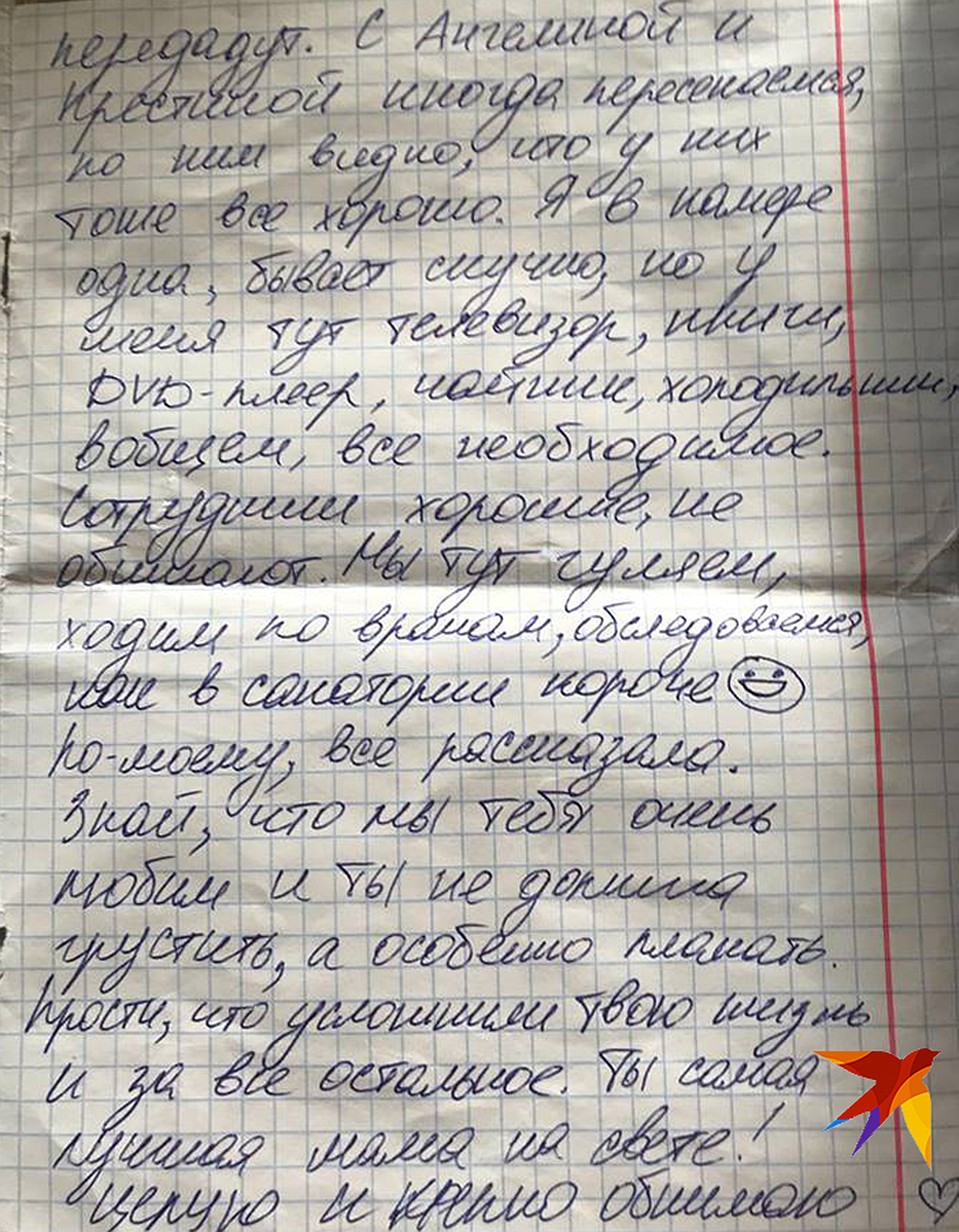 передадут. С Ангелиной и
Крестиной иногда пересекаемся,
по ним видно, что у них
тоже все хорошо. Я в камере
одна, бывает скучно, но у
меня тут телевизор, книги,
DVD-плеер, чайник, холодильник,
вобщем, все необходимое.
Сотрудники хорошие, не
обижают. Мы тут гуляем,
ходим по врачам, обследоваемся,
как в санатории короче
По-моему, все рассказала.
Знай, что мы тебя очень
любим и ты не должна
грустить, а особенно плакать.
Прости, что усложнили твою жизнь
и за все остальное. Ты самая
лучшая мама на свете!
Целую и крепко обнимаю